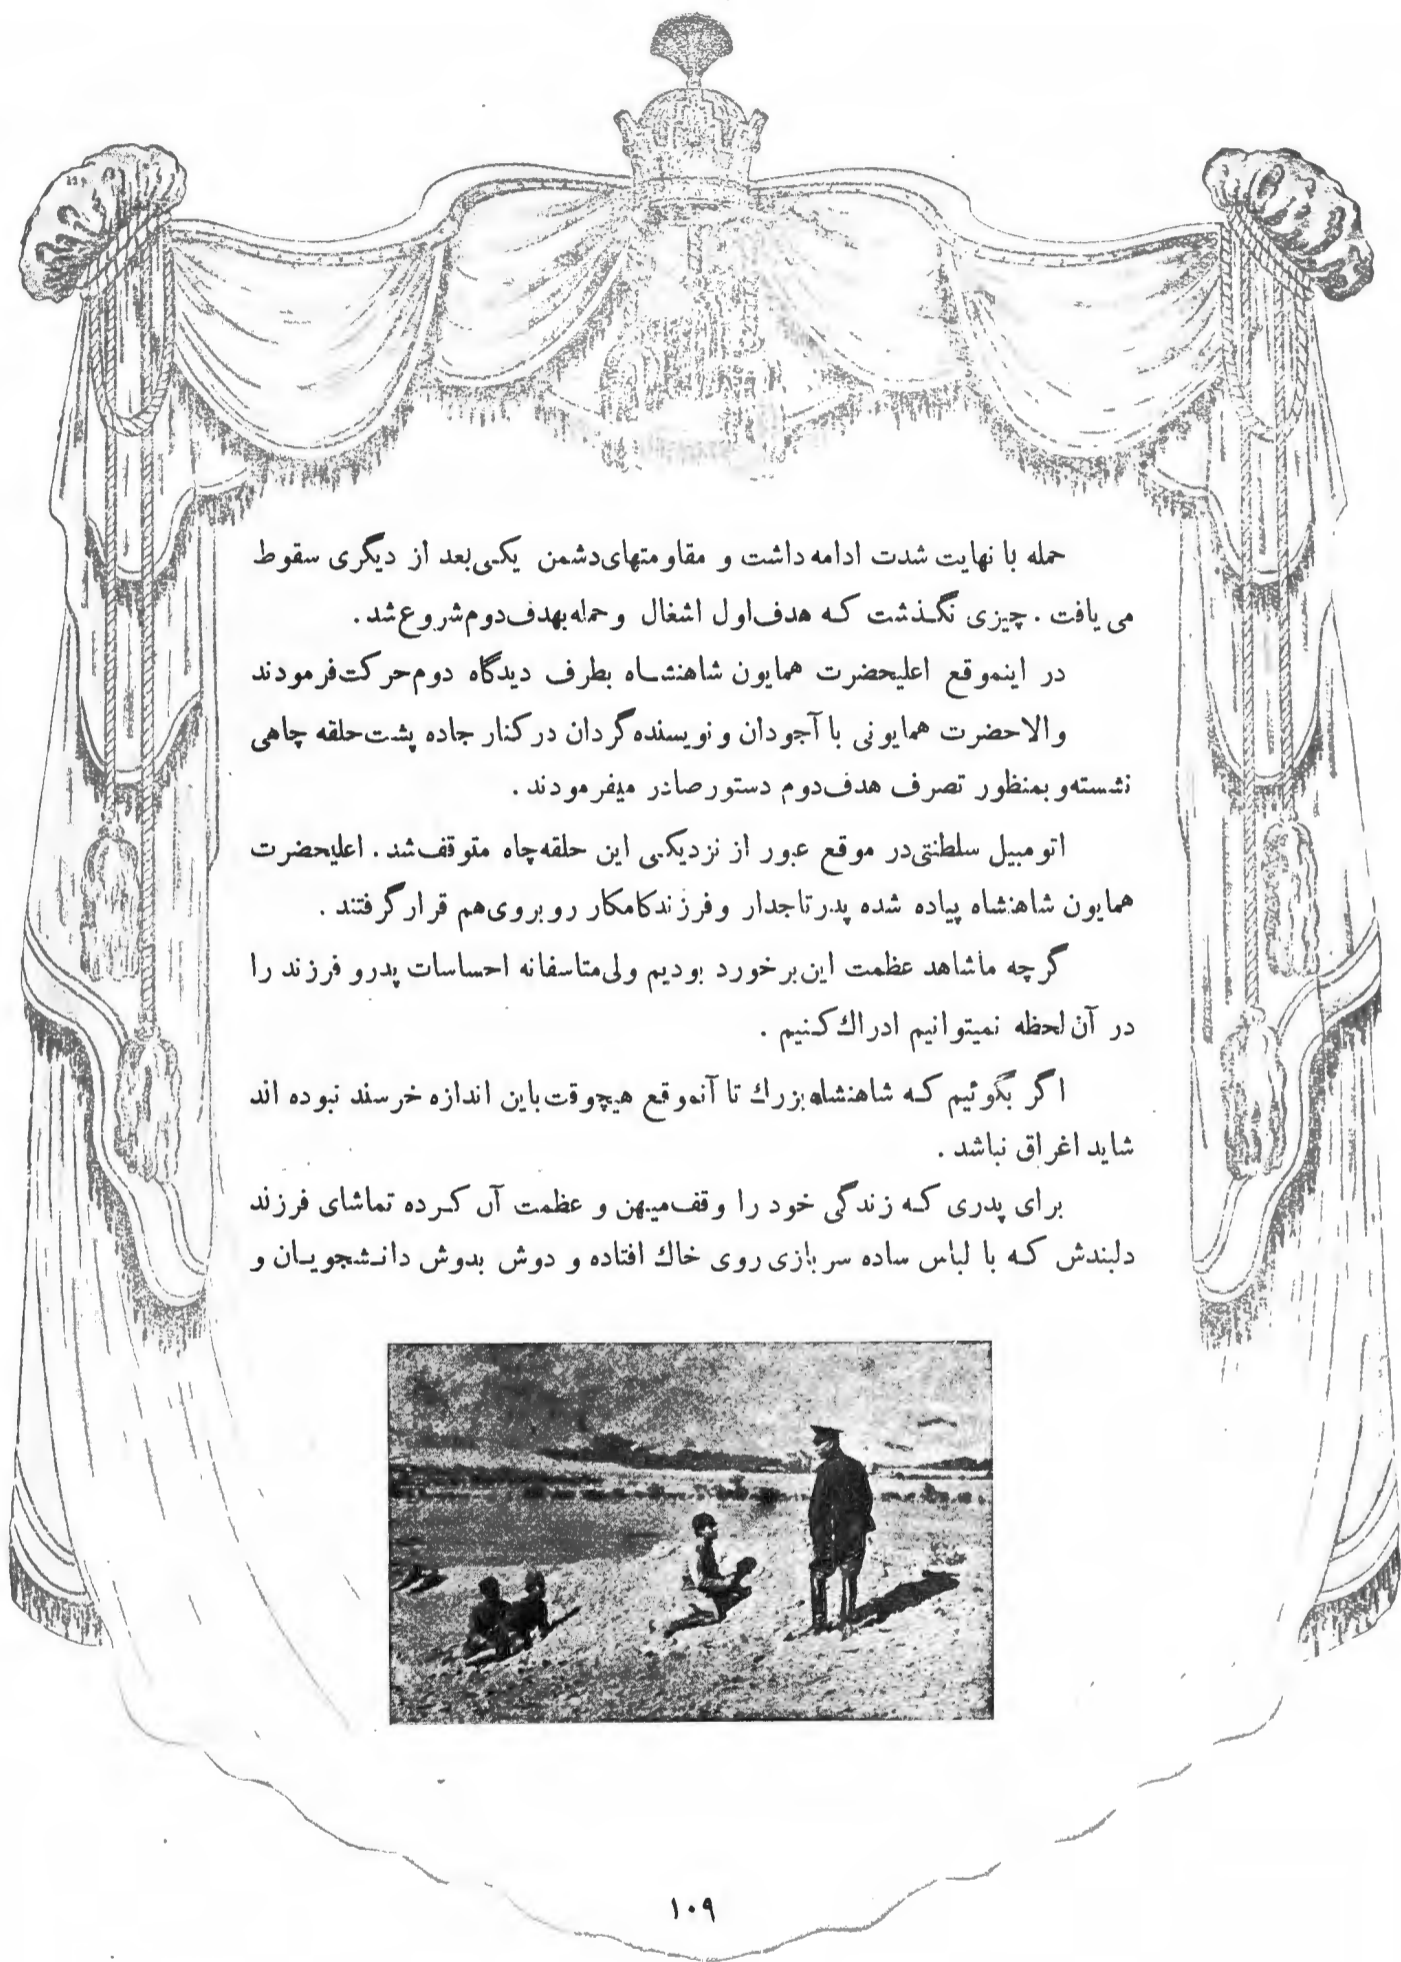 حمله با نهایت شدت ادامه داشت و مقاومتهای دشمن یکی بعد از دیگری سقوط
می یافت . چیزی نگذشت که هدف اول اشغال و حمله بهدف دوم شروع شد .
در اینموقع اعلیحضرت همایون شاهنشاه بطرف دیدگاه دوم حرکت فرمودند
والاحضرت همایونی با آجودان و نویسنده گردان در کنار جاده پشت حلقه چاهی
نشسته و بمنظور تصرف هدف دوم دستور صادر میفرمودند .
اتومبیل سلطنتی در موقع عبور از نزدیکی این حلقه چاه متوقف شد . اعلیحضرت
همایون شاهنشاه پیاده شده پدر تاجدار و فرزند کامکار روبروی هم قرار گرفتند .
گرچه ما شاهد عظمت این برخورد بودیم ولی متاسفانه احساسات پدر و فرزند را
در آن لحظه نمیتوانیم ادراك کنیم .
اگر بگوئیم که شاهنشاه بزرك تا آنموقع هیچوقت باین اندازه خرسند نبوده اند
شاید اغراق نباشد .
برای پدری که زندگی خود را وقف میهن و عظمت آن کرده تماشای فرزند
دلبندش که با لباس ساده سربازی روی خاك افتاده و دوش بدوش دانشجویان و
۱۰۹